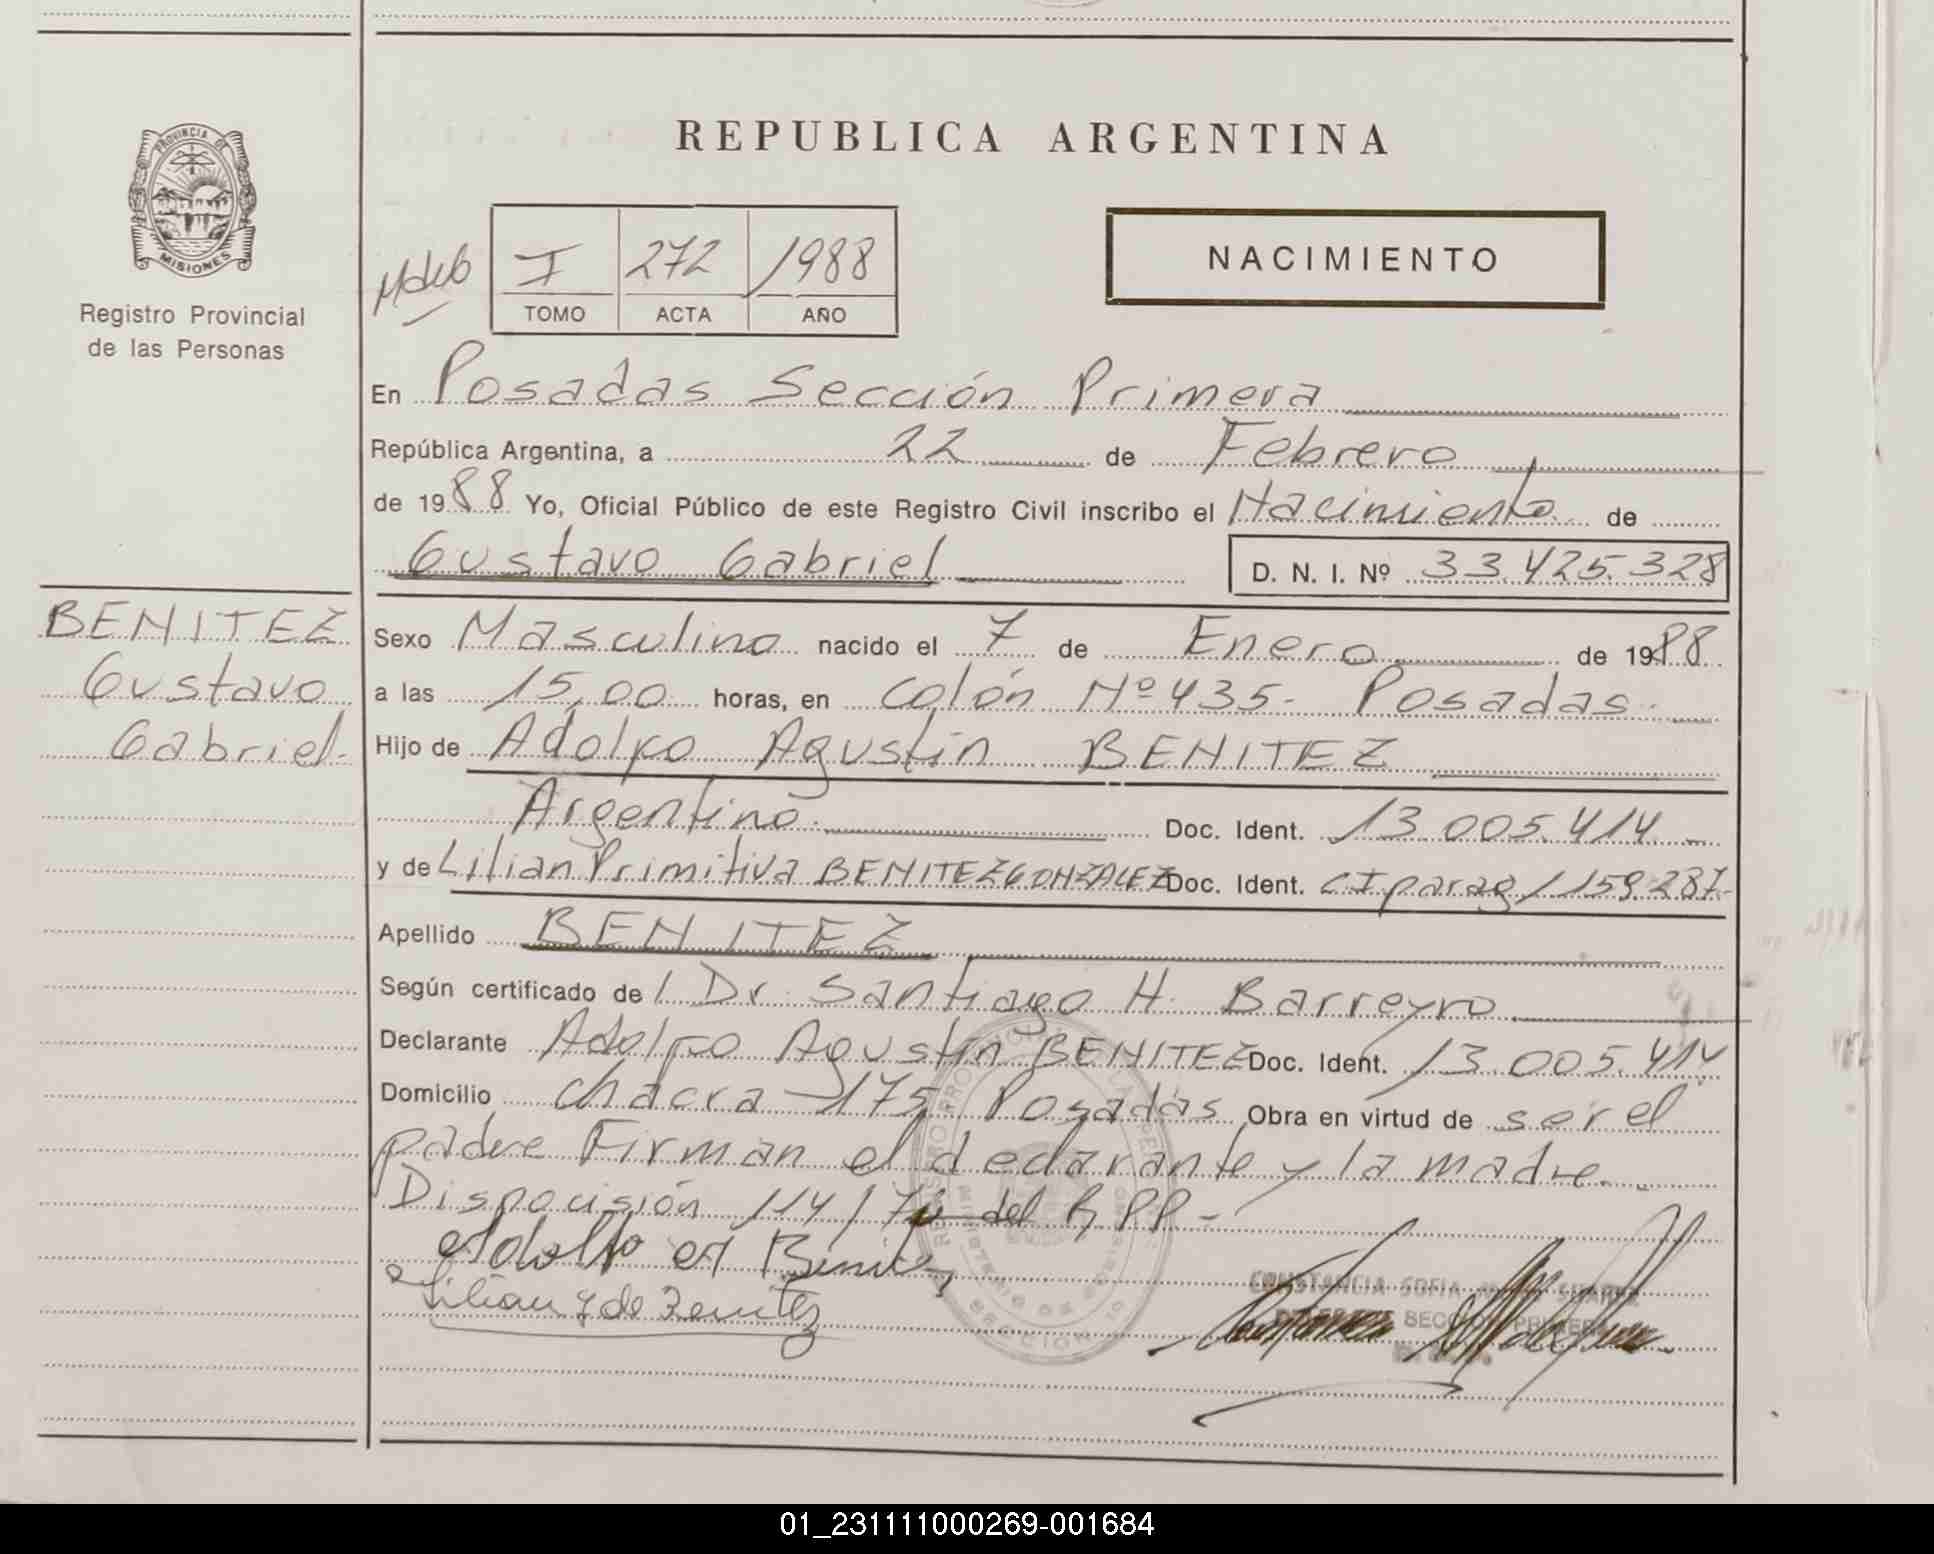 REPUBLICA ARGENTINA
PROVINCIA DE
MISIONES
Registro Provincial
de las Personas
I 272 1988
TOMO ACTA AÑO
NACIMIENTO
En Posadas Sección Primera
República Argentina, a 22 de Febrero
de 1988 Yo, Oficial Público de este Registro Civil inscribo el Nacimiento de
Gustavo Gabriel D. N. I. Nº 33.425.328
BENITEZ
Gustavo
Gabriel-
Sexo Masculino nacido el 7 de Enero de 1988
a las 15,00 horas, en Colón Nº 435- Posadas.
Hijo de Adolfo Agustín BENITEZ
Argentino. Doc. Ident. 13.005.414.-
y de Lilian Primitiva BENITEZ GONZALEZ Doc. Ident. CI parag/1159.287-
Apellido BENITEZ
Según certificado de / Dr. Santiago H. Barreyro
Declarante Adolfo Agustín BENITEZ Doc. Ident. 13.005.414
Domicilio Chacra 175 Posadas Obra en virtud de ser el
padre Firman el declarante y la madre.-
Disposición 114/ del R.P.P.-
Adolfo A Benitez
Lilian G de Benitez
CONSTANCIA SOFIA SUAREZ
SECCION PRIMERA
01_231111000269-001684